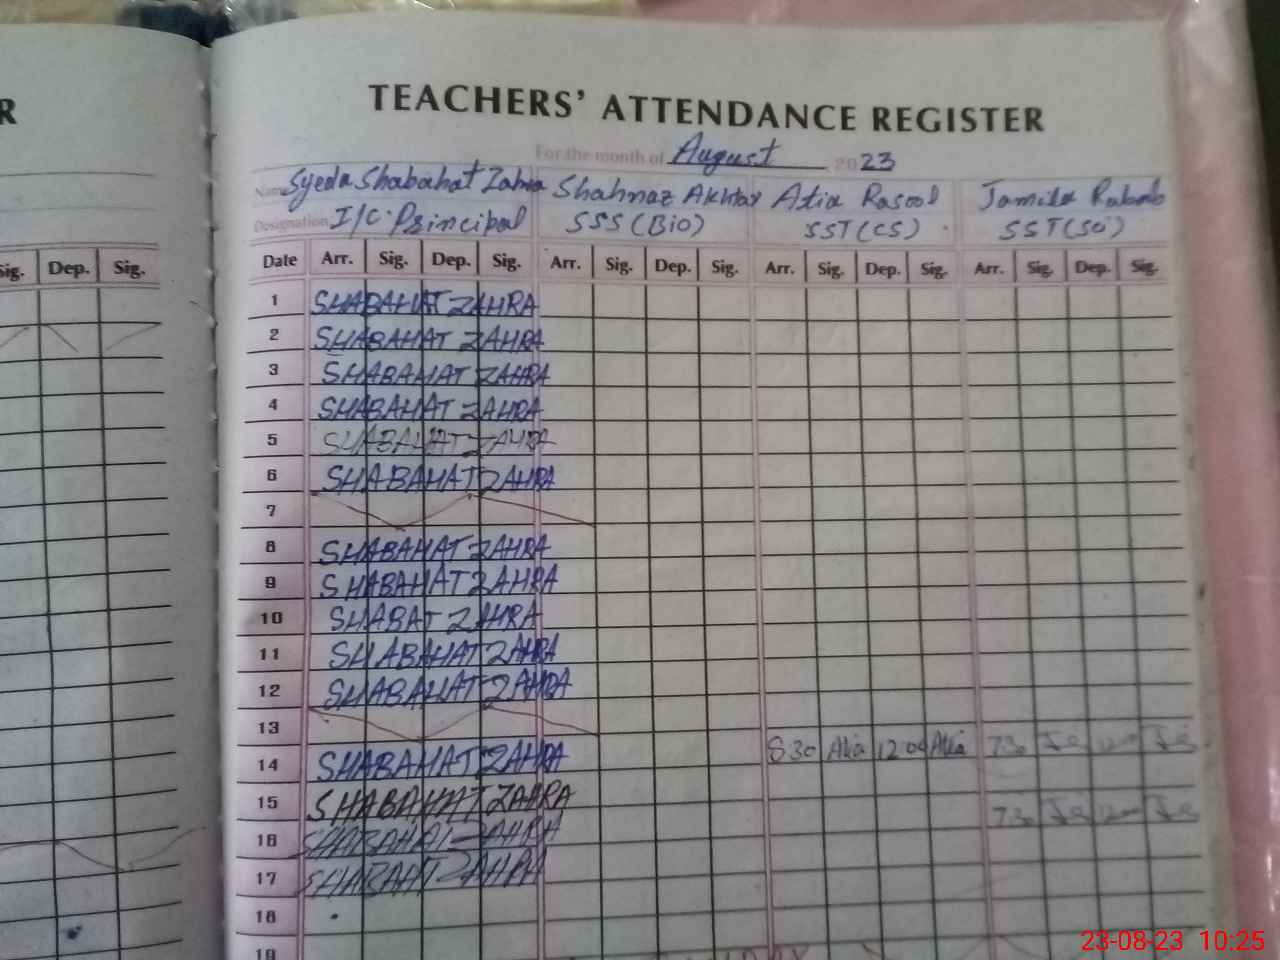 R
TEACHERS' ATTENDANCE REGISTER
For the month of August 2023
Name Syeda Shabahat Zahra Shahnaz Akhtar Atia Rasool Jamila Rabab
Designation I/C Principal SSS (Bio) SST (CS) SST (Sci)
Sig. Dep. Sig. Date Arr. Sig. Dep. Sig. Arr. Sig. Dep. Sig. Arr. Sig. Dep. Sig. Arr. Sig. Dep. Sig.
1 SHABAHAT ZAHRA
2 SHABAHAT ZAHRA
3 SHABAHAT ZAHRA
4 SHABAHAT ZAHRA
5 SHABAHAT ZAHRA
6 SHABAHAT ZAHRA
7
8 SHABAHAT ZAHRA
9 SHABAHAT ZAHRA
10 SHABAT ZAHRA
11 SHABAHAT ZAHRA
12 SHABAHAT ZAHRA
13
14 SHABAHAT ZAHRA 8:30 Atia 12:04 Atia 7:30
15 SHABAHAT ZAHRA 7:30
16 SHABAHAT ZAHRA
17 SHABAHT ZAHRA
18
19
23-08-23 10:25